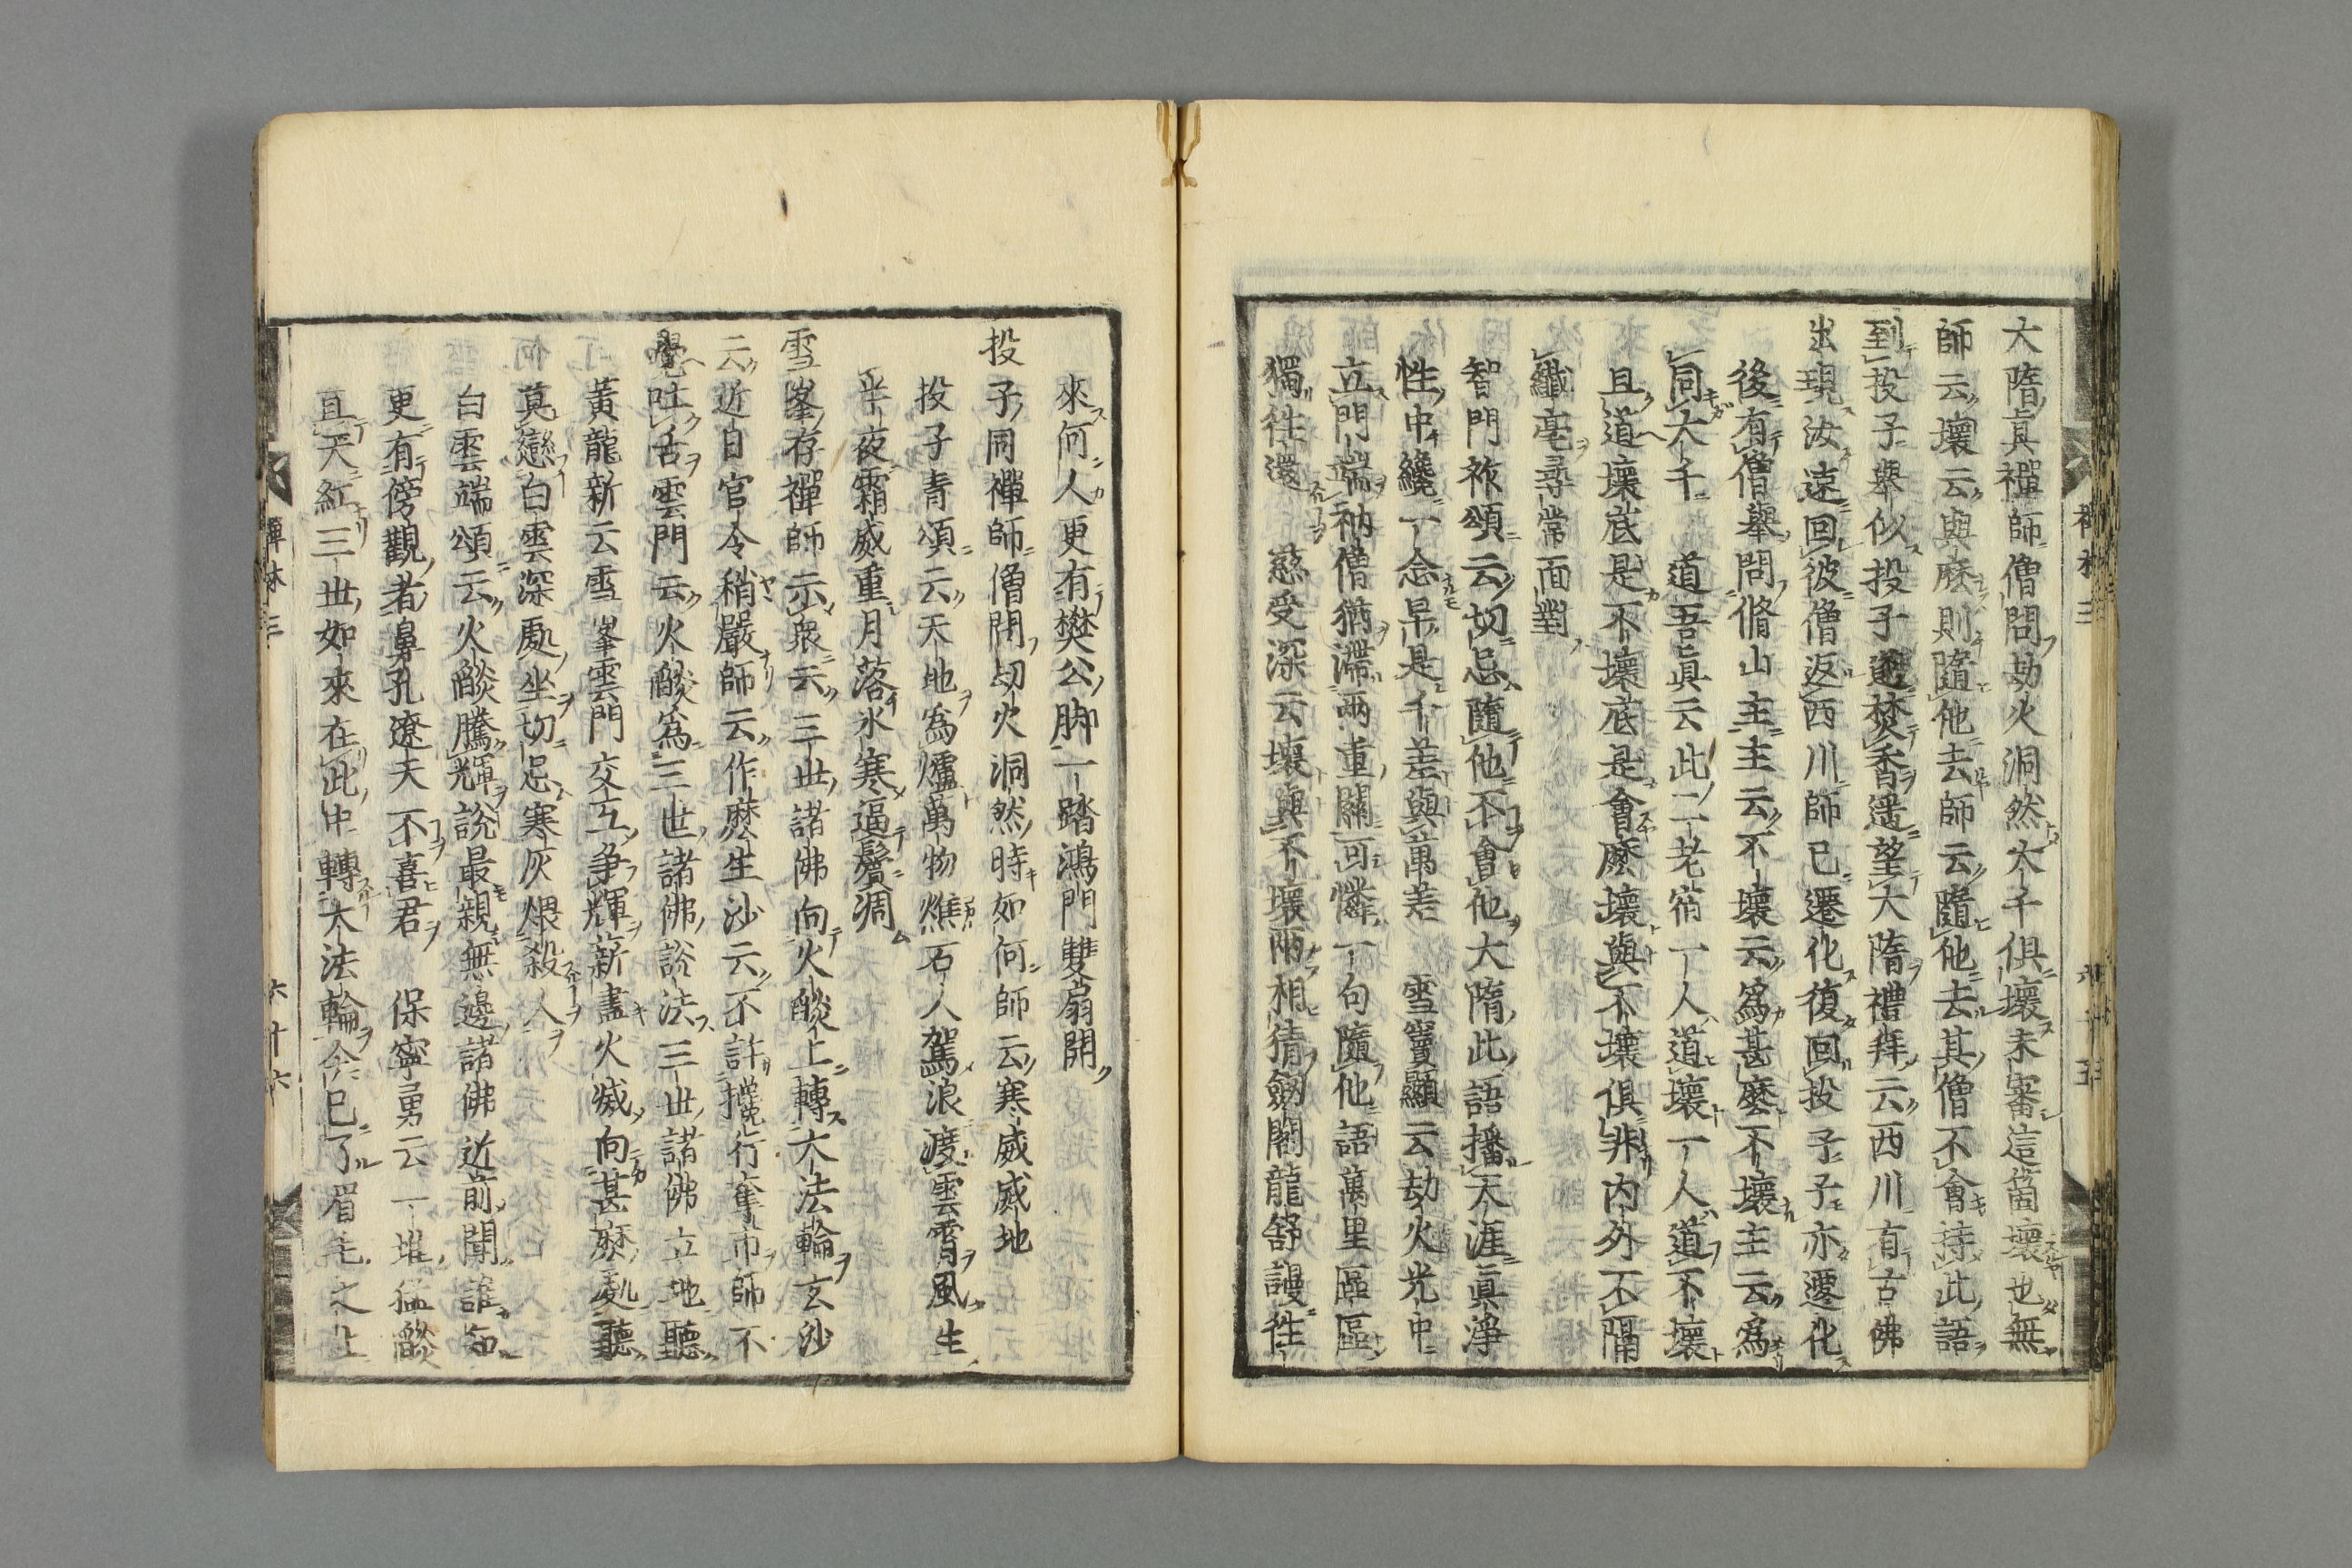 大隋眞禪師僧問劫火洞然大千俱壞未審這箇壞也無
師云壞云與麼則隨他去師云隨他去其僧不會持此語
到投子舉似投子遂焚香遥望大隋禮拜云西川有古佛
出現汝速回彼僧返西川師已遷化復回投子子亦遷化
後有僧舉問脩山主主云不壞云爲甚麼不壞主云爲
同大千 道吾眞云此二老宿一人道壞一人道不壞
且道壞底是不壞底是會麼壞與不壞俱非内外不隔
纎毫尋常面對
智門祚頌云切忌隨他不會他大隋此語播天涯眞浄
性中纔一念早是千差與萬差 雪竇顯云劫火光中
立門端衲僧猶滯兩重關可憐一句隨他語萬里區區
獨徃還 慈受深云壞與不壞兩相猜劒閣龍舒謾徃
禪林三
六十五
來何人更有樊公脚一踏鴻門雙扇開
投子同禪師僧問劫火洞然時如何師云寒威威地
投子青頌云天地爲爐萬物燋石人駕浪渡雲霄風生
半夜霜威重月落氷寒逼鬢凋
雪峯存禪師示衆云三世諸佛向火𦦨上轉大法輪玄沙
云近日官令稍嚴師云作麼生沙云不許攙行奪市師不
覺吐舌雲門云火𦦨爲三世諸佛説法三世諸佛立地聽
黃龍新云雪峯雲門交互爭輝薪盡火滅向甚麼處聽
莫戀白雲深處坐切忌寒灰煨殺人
白雲端頌云火𦦨騰輝説最親無邊諸佛近前聞誰知
更有傍觀者鼻孔遼天不喜君 保寧勇云一堆猛𦦨
亘天紅三世如來在此中轉大法輪今已了眉毛之上
禪林三
六十六